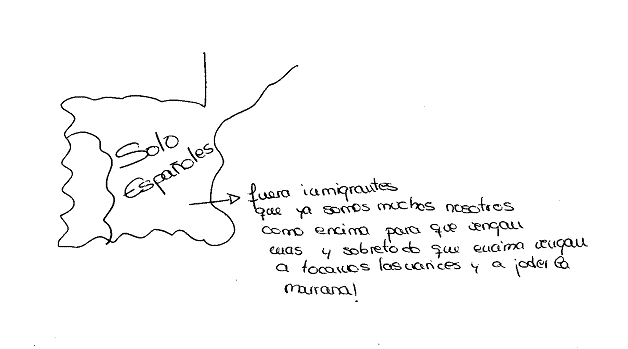 Solo
Españoles
fuera inmigrantes
que ya somos muchos nosotros
como encima para que vengan
mas y sobretodo que encima vengan
a tocarnos las narices y a joder la
marrana!